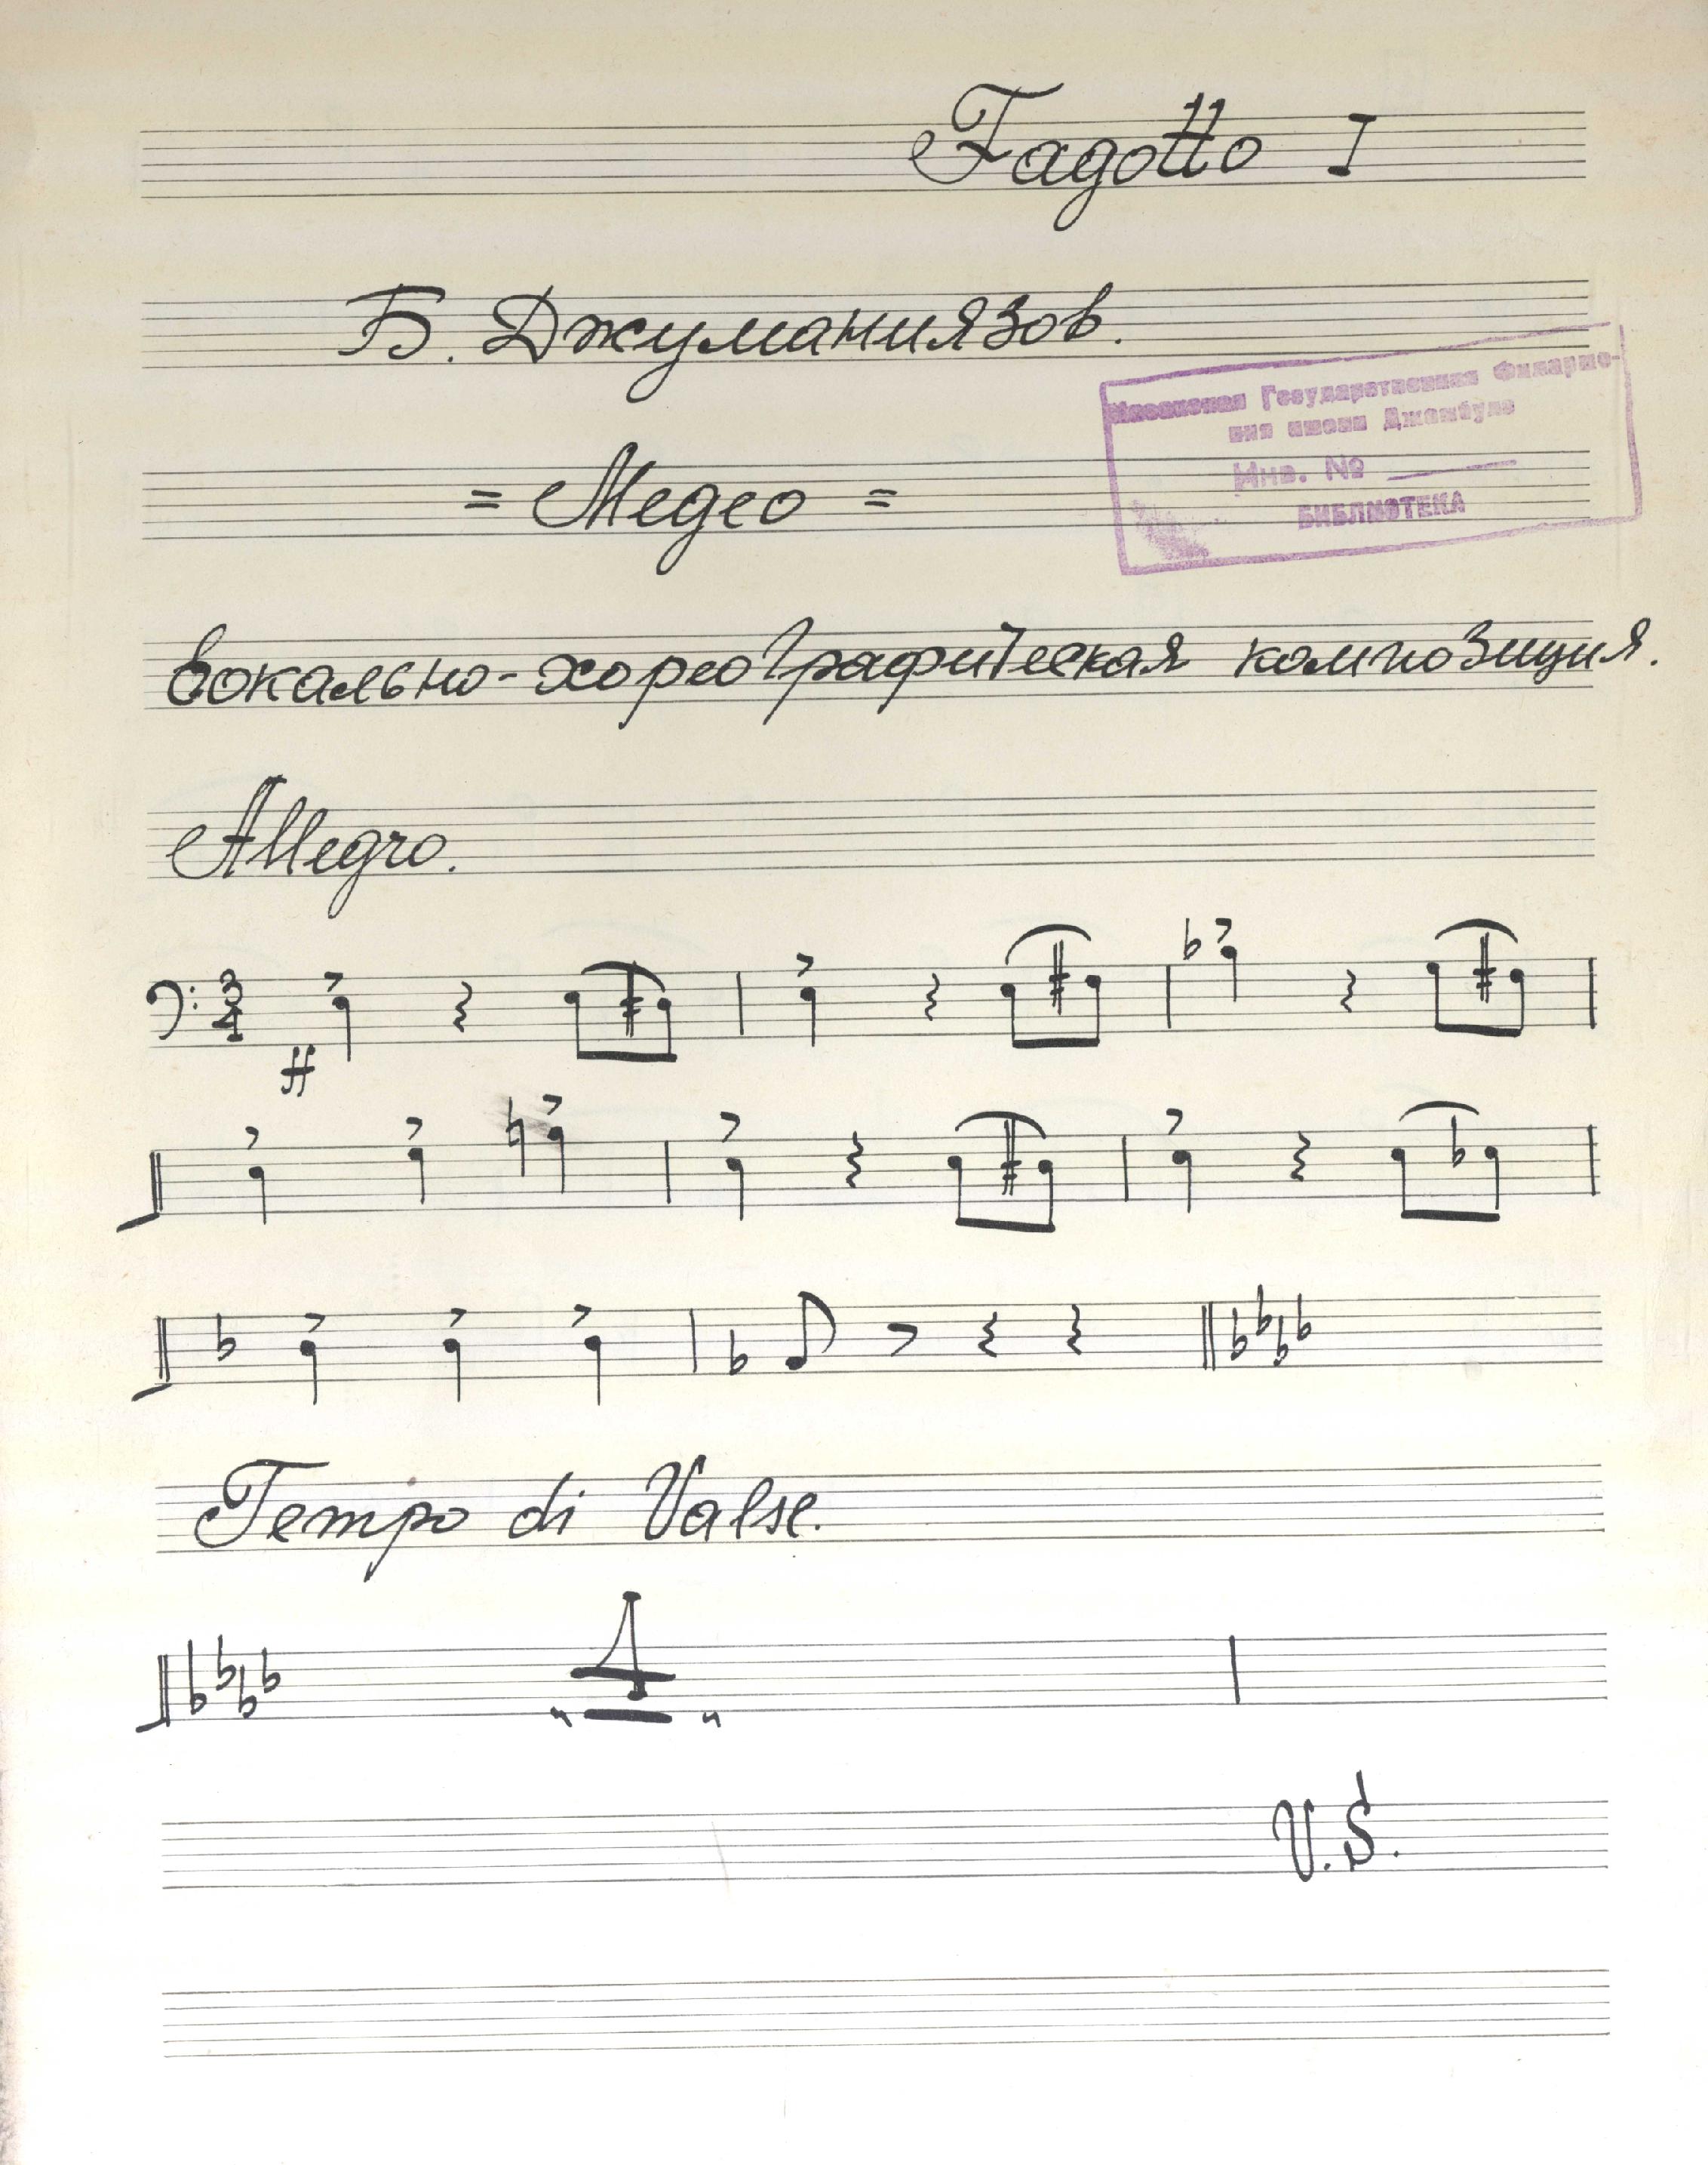 Fagotto I
Б. Джуманиязов.
Государственная Филармо-
ния имени Джамбула
Инв. №
БИБЛИОТЕКА
= Медео =
Вокально-хореографическая композиция.
Allegro.
3/4
ff
Tempo di Valse.
4
V.S.